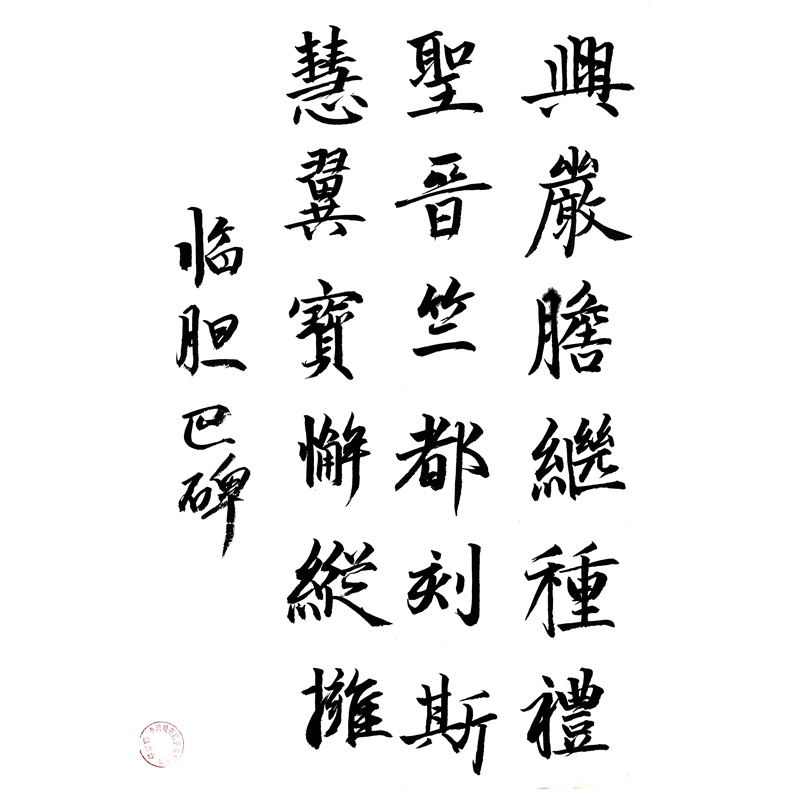 興嚴膽繼種禮
聖晉竺都刻斯
慧翼寶懈縱擁
临胆巴碑